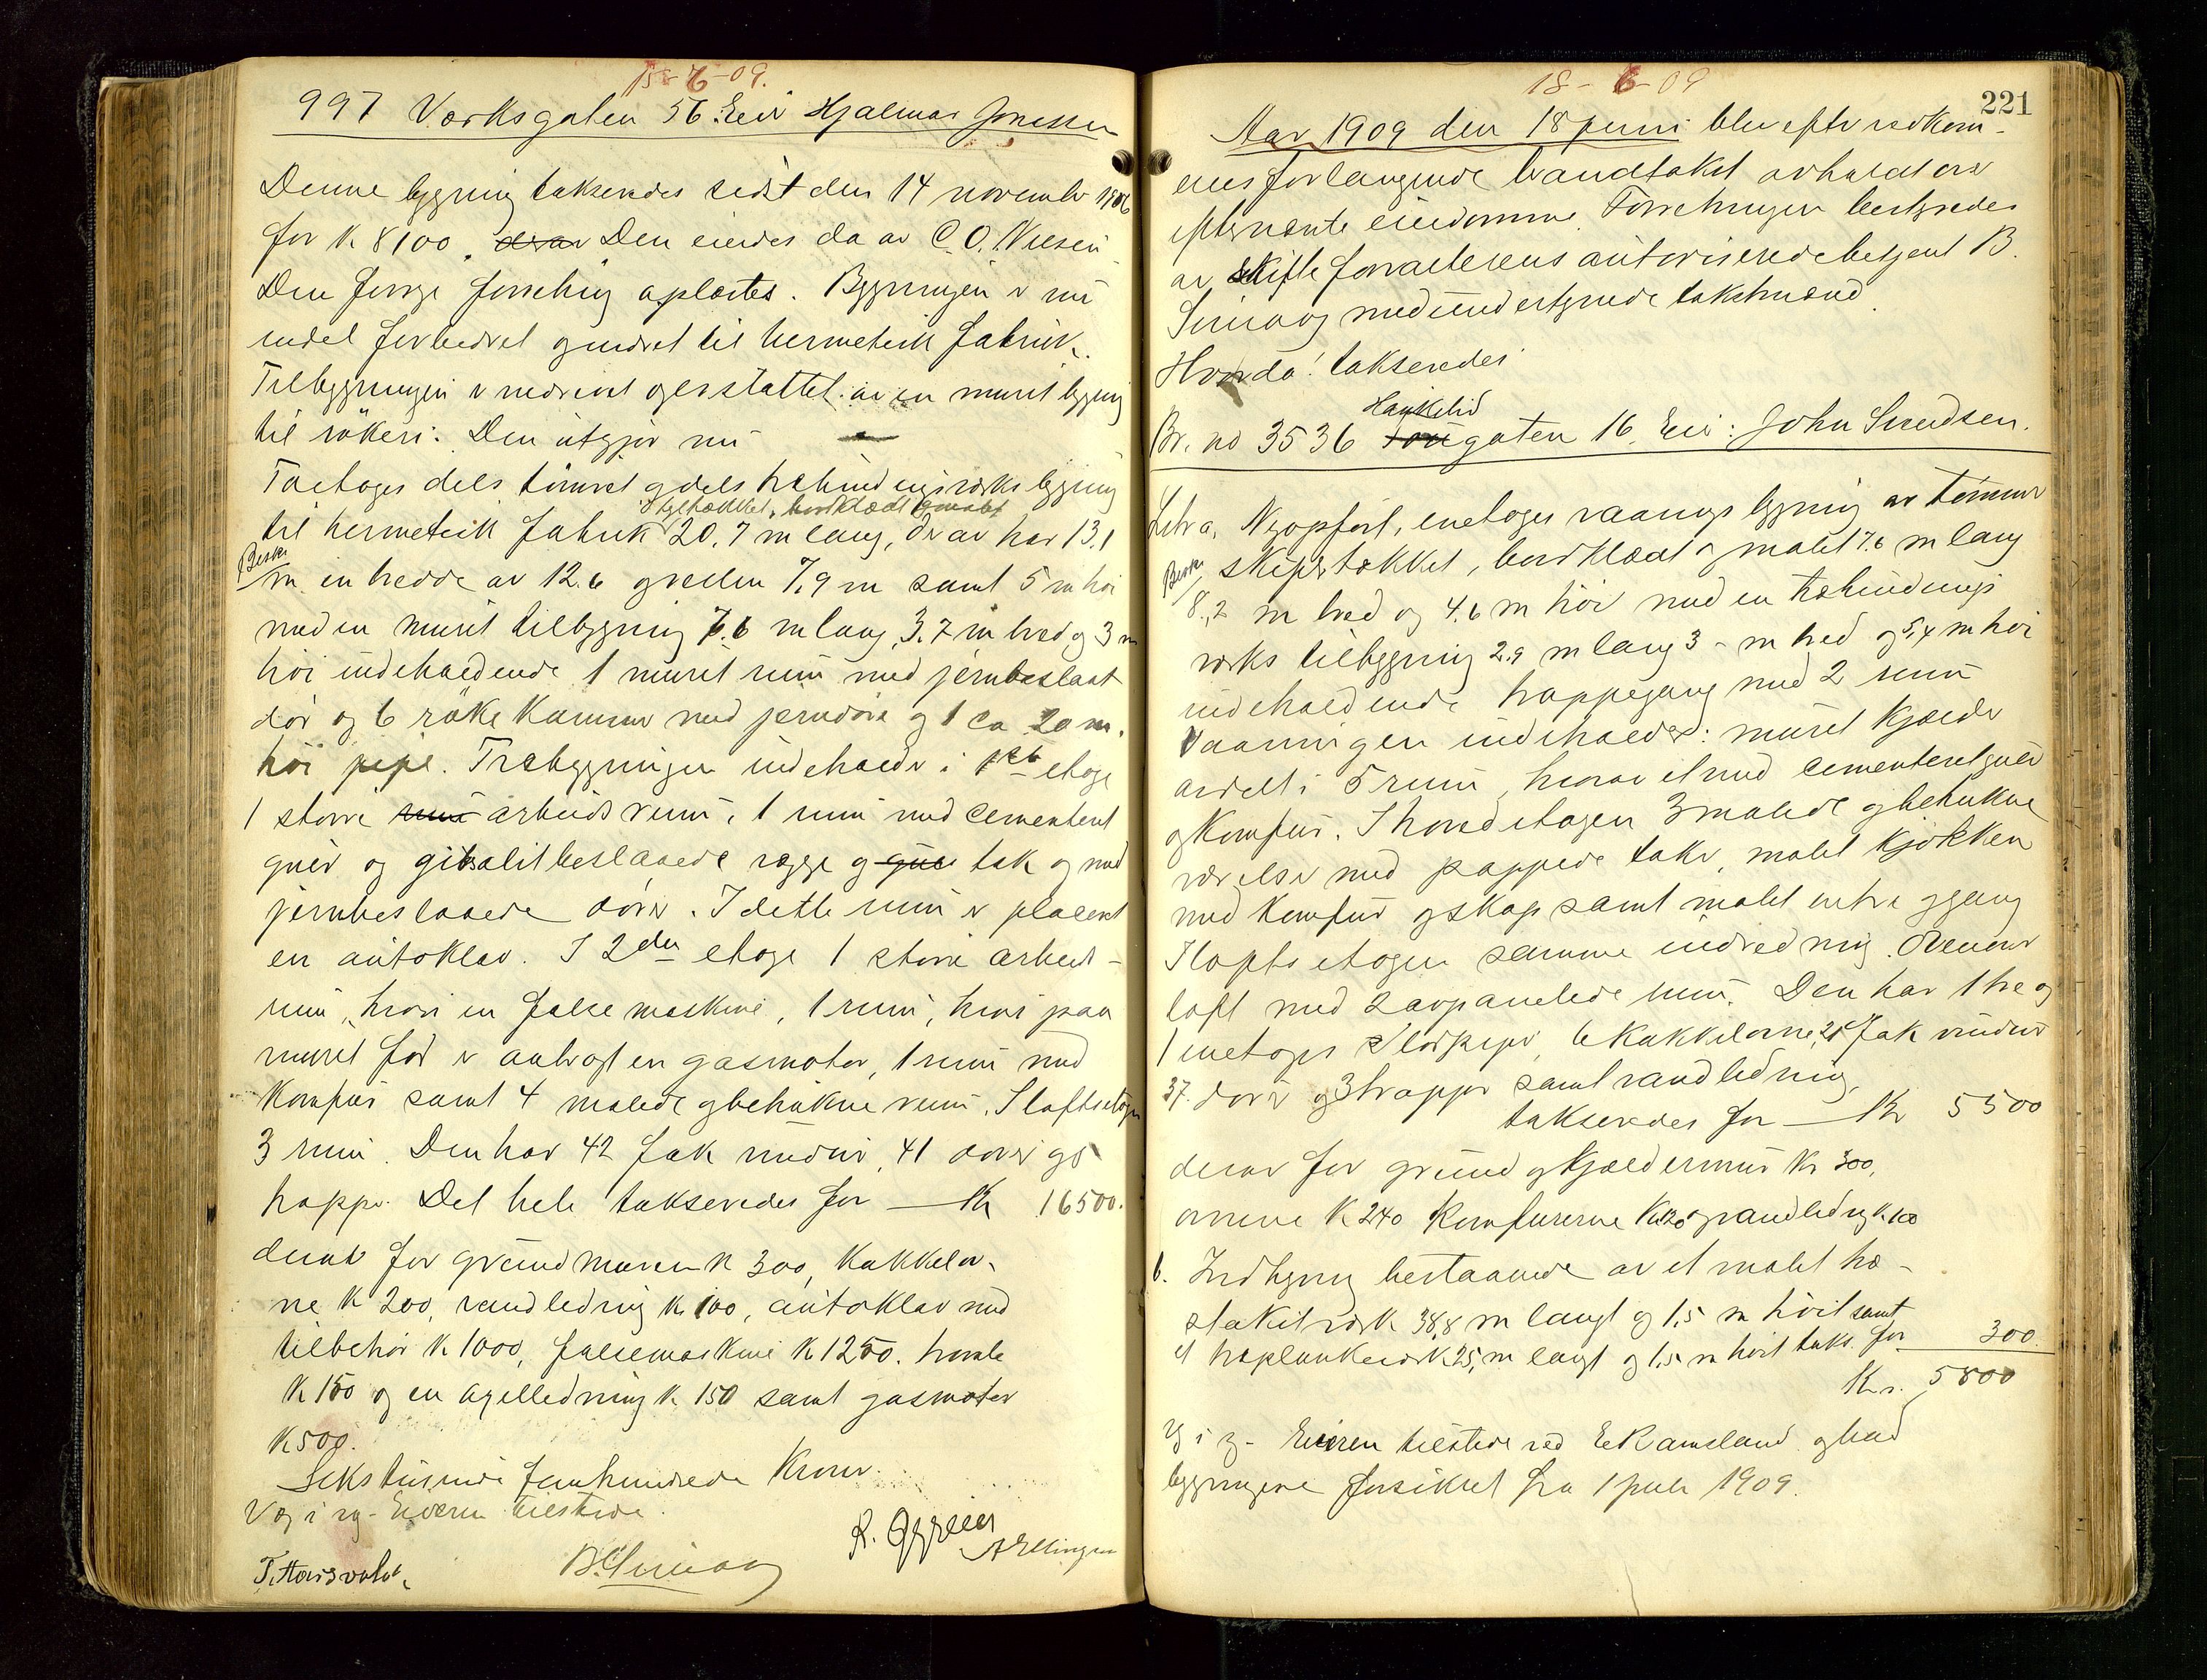 18-6-09.
997 Værksgaten 56. Eier Hjalmar Jonessen
Denne bygning takseredes sidst den 14 november 1906
for K 8100. derav Den eiedes da av C. O. Nilsen
Den forrige forretning oplæstes. Bygningen er nu
endel forbedret og indret til hermetik fabrik.
Tilbygningen er nedrevet og erstattet av en muret bygning
til rökeri. Den utgjör nu
Toetages dels tömret og dels trebindingsværks bygning
skifertækket, bordklædt og malet
til hermetik fabrik 20,7 m lang, derav har 13,1
Beskr
m en bredde av 12.6 og resten 7,9 m samt 5 m höi
med en muret tilbygning 7.6 m lang, 3.7 m bred og 3 m
höi indeholdende 1 muret rum med jernbeslaat
dör og 6 röke kammer med jerndöre og 1 ca 20 m.
höi pipe. Træbygningen indeholder i 1ste etage
1 större rum arbeidsrum, 1 rum med cementert
gulv og gibsalitbeslaaede vægge og gulv tak og med
jernbeslaaede dörer. I dette rum er placeret
en autoklav. I 2den etage 1 större arbeids-
rum, hvori en false maskine, 1 rum, hvor paa
muret fod er anbragt en gasmotor, 1 rum med
komfur samt 4 malede og betrukne rum. I loftsetagen
3 rum. Den har 42 fak vinduer, 41 dörer og 5
trapper. Det hele takseredes for — Kr 16500.
derav for grundmuren K 300, kakkelov-
ne K 200, vandledning K 100, autoklav med
tilbehör K 1000, falsemaskine K 1250.
K 150 og en axelledning K 150 samt gasmotor
K 500.
Sekstusende femhundrede Kroner.
V og i rg - Eieren tilstede.
18-6-09
221
Aar 1909 den 18 juni blev efter vedkom-
enes forlangende brandtakst avholdt over
efternævnte eiendomme. Forretningen bestyredes
av skifteforvalterens autoriserede betjent B.
med undertegnede takstmænd.
Hvorda! takseredes
Haukelid
Br. no 3536 gaten 16. Eier: John Svendsen.
Litr a. Nyopfört, enetages vaanings bygning av tömmer
Beskr
skifertækket, bordklædt og malet 7.6 m lang
8.,2 m bred og 4.6 m höi med en træbindings
værks tilbygning 2.9 m lang 3 - m bred og 5,4 m höi
indeholdende trappegang med 2 rum
Vaaningen indeholder: muret kjælder
avdelt i 5 rum, hvorav et med cementeret gulv
og komfur. I hovedetagen 3 malede og betrukne
værelser med pappede taker, malet kjökken
med komfur og skap samt malet entre og gang
I lofts etagen samme indredning. Ovenover
loft med 2 avpanelede rum. Den har 1 tre og
1 enetages Slorpiper, 6 kakkelovne, 25 fak vinduer
37. dörer og 3 trapper samt vandledning,
takseredes for — Kr 5500
derav for grund og kjældermur Kr 300,
ovnene K 240 Komfurerne K 120 og vandledning K 100
b. Indhegning bestaaende av et malet træ-
stakitværk 38,8 m langt og 1,5 m höit samt
et træplankeværk 25, m langt og 1,5 m höit taks. for 300.
Kr. 5800
V og i rg - Eieren tilstede ved E Ramsland og bad
bygningene forsikret fra 1 juli 1909.